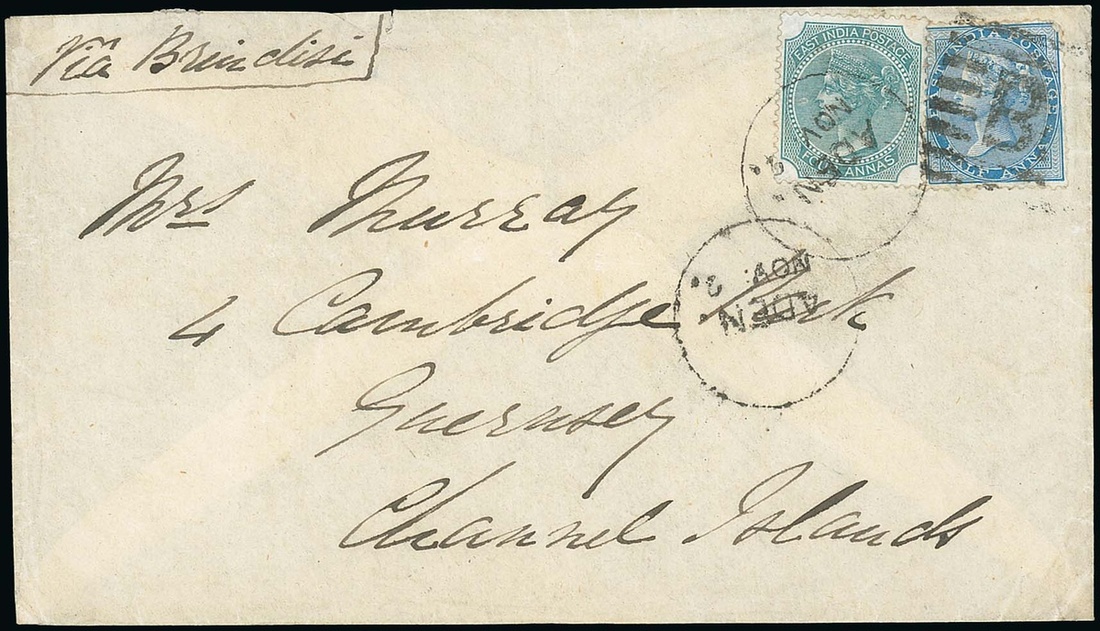 Via Brindisi
EAST INDIA POSTAGE
FOUR ANNAS
EAST INDIA POSTAGE
HALF ANNA
B
ADEN
NOV 2
ADEN
NOV. 2
Mrs Murray
4 Cambridge Park
Guernsey
Channel Islands